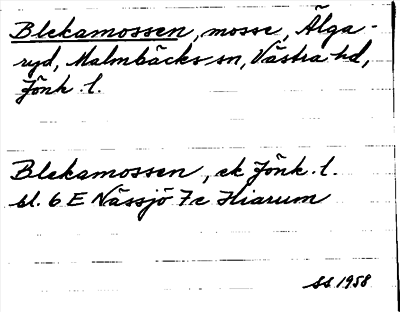 Blekamossen, mosse, Älga-
ryd, Malmbäcks sn, Västra hd,
Jönk. l.
Blekamossen, ek Jönk. l.
bl. 6 E Nässjö 7c Hiarum
SS 1958